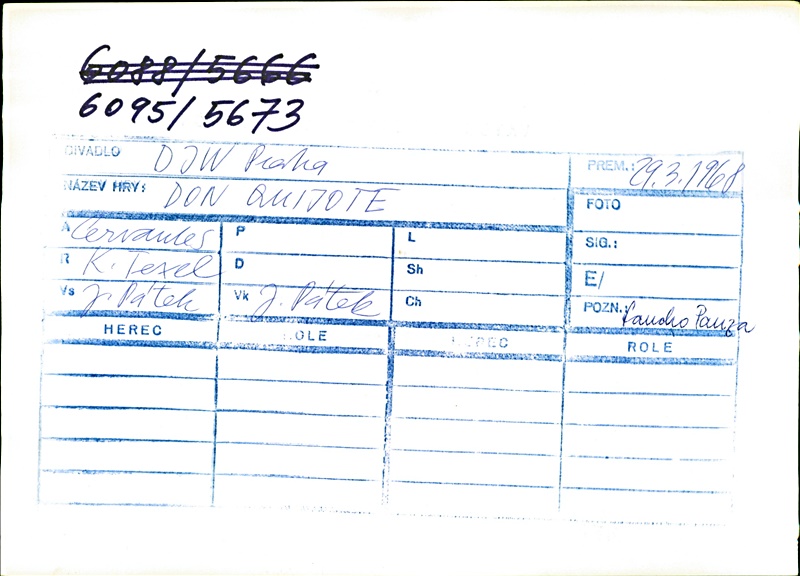 6088/5666
6095/5673
DIVADLO DJW Praha PREM.: 29.3.1968
NÁZEV HRY: DON QUIJOTE FOTO
A Cervantes P L SIG.:
R K. Texel D Sh E/
Vs J. Pátek Vk J. Pátek Ch POZN.: Sancho Panza
HEREC ROLE HEREC ROLE